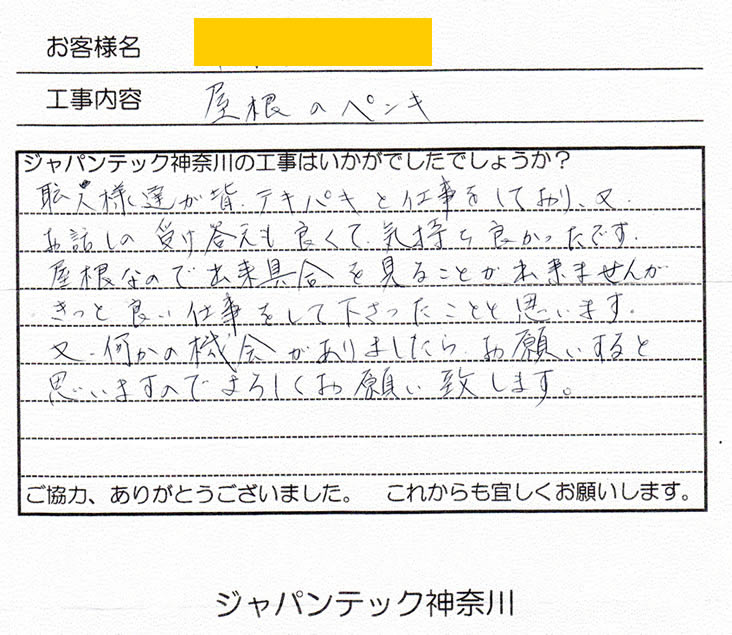 お客様名
工事内容 屋根のペンキ
ジャパンテック神奈川の工事はいかがでしたでしょうか？
職人様達が皆、テキパキと仕事をしており、又、
お話しの受け答えも良くて、気持ち良かったです。
屋根なので出来具合を見ることが出来ませんが
きっと良い仕事をして下さったことと思います。
又、何かの機会がありましたら、お願いすると
思いますのでよろしくお願い致します。
ご協力、ありがとうございました。 これからも宜しくお願いします。
ジャパンテック神奈川